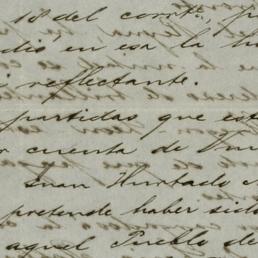 18 del corrte, p
dió en esa la h
i reflectante.
partidas que est
r cuenta de
Juan Hurtado
pretende haber sid
aquel Pueblo de